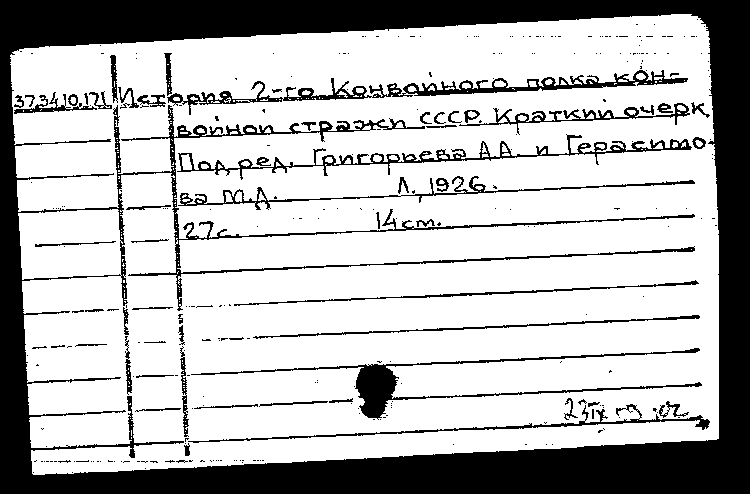 37.34.10.171 История 2-го Конвойного полка кон-
войной стражи СССР. Краткий очерк.
Под ред. Григорьева А.А. и Герасимо-
ва М.Д. Л., 1926.
27с. 14 см.
23 IX